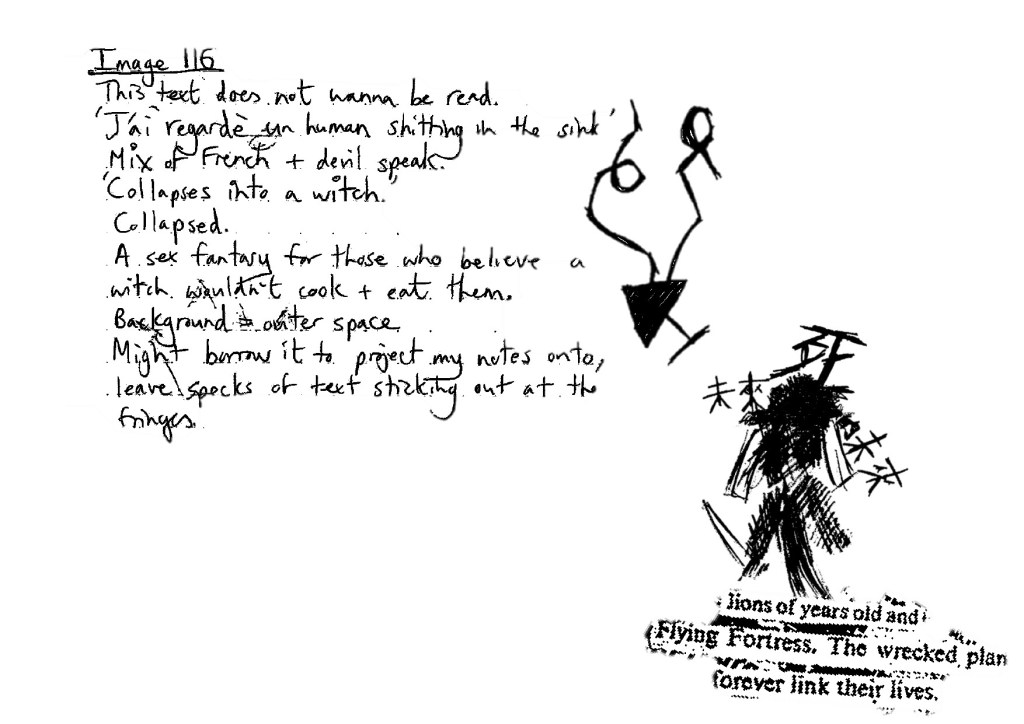 Image 116
This text does not wanna be read.
'J'ai regardè un human shitting in the sink'
Mix of French + devil speak.
'Collapses into a witch.'
Collapsed.
A sex fantasy for those who believe a
witch wouldn't cook + eat them.
Background = outer space.
Might borrow it to project my notes onto,
leave specks of text sticking out at the
fringes.
未来
未来
llions of years old and
Flying Fortress. The wrecked plan
forever link their lives.